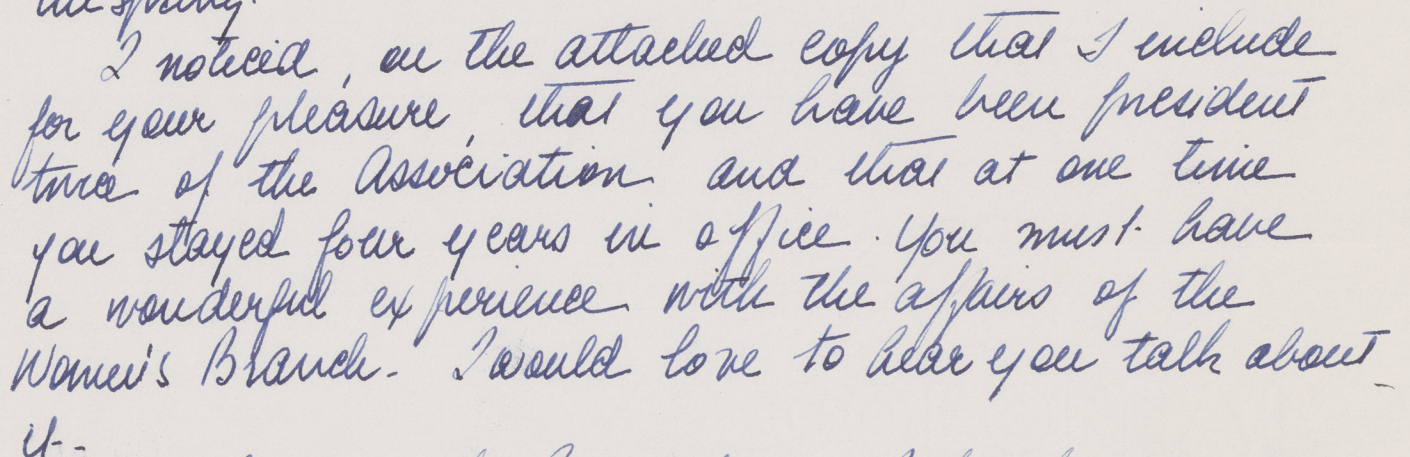 the spring.
I noticed, on the attached copy that I include
for your pleasure, that you have been president
twice of the Association and that at one time
you stayed four years in office. You must have
a wonderful experience with the affairs of the
Women's Branch. I would love to hear you talk about
it.